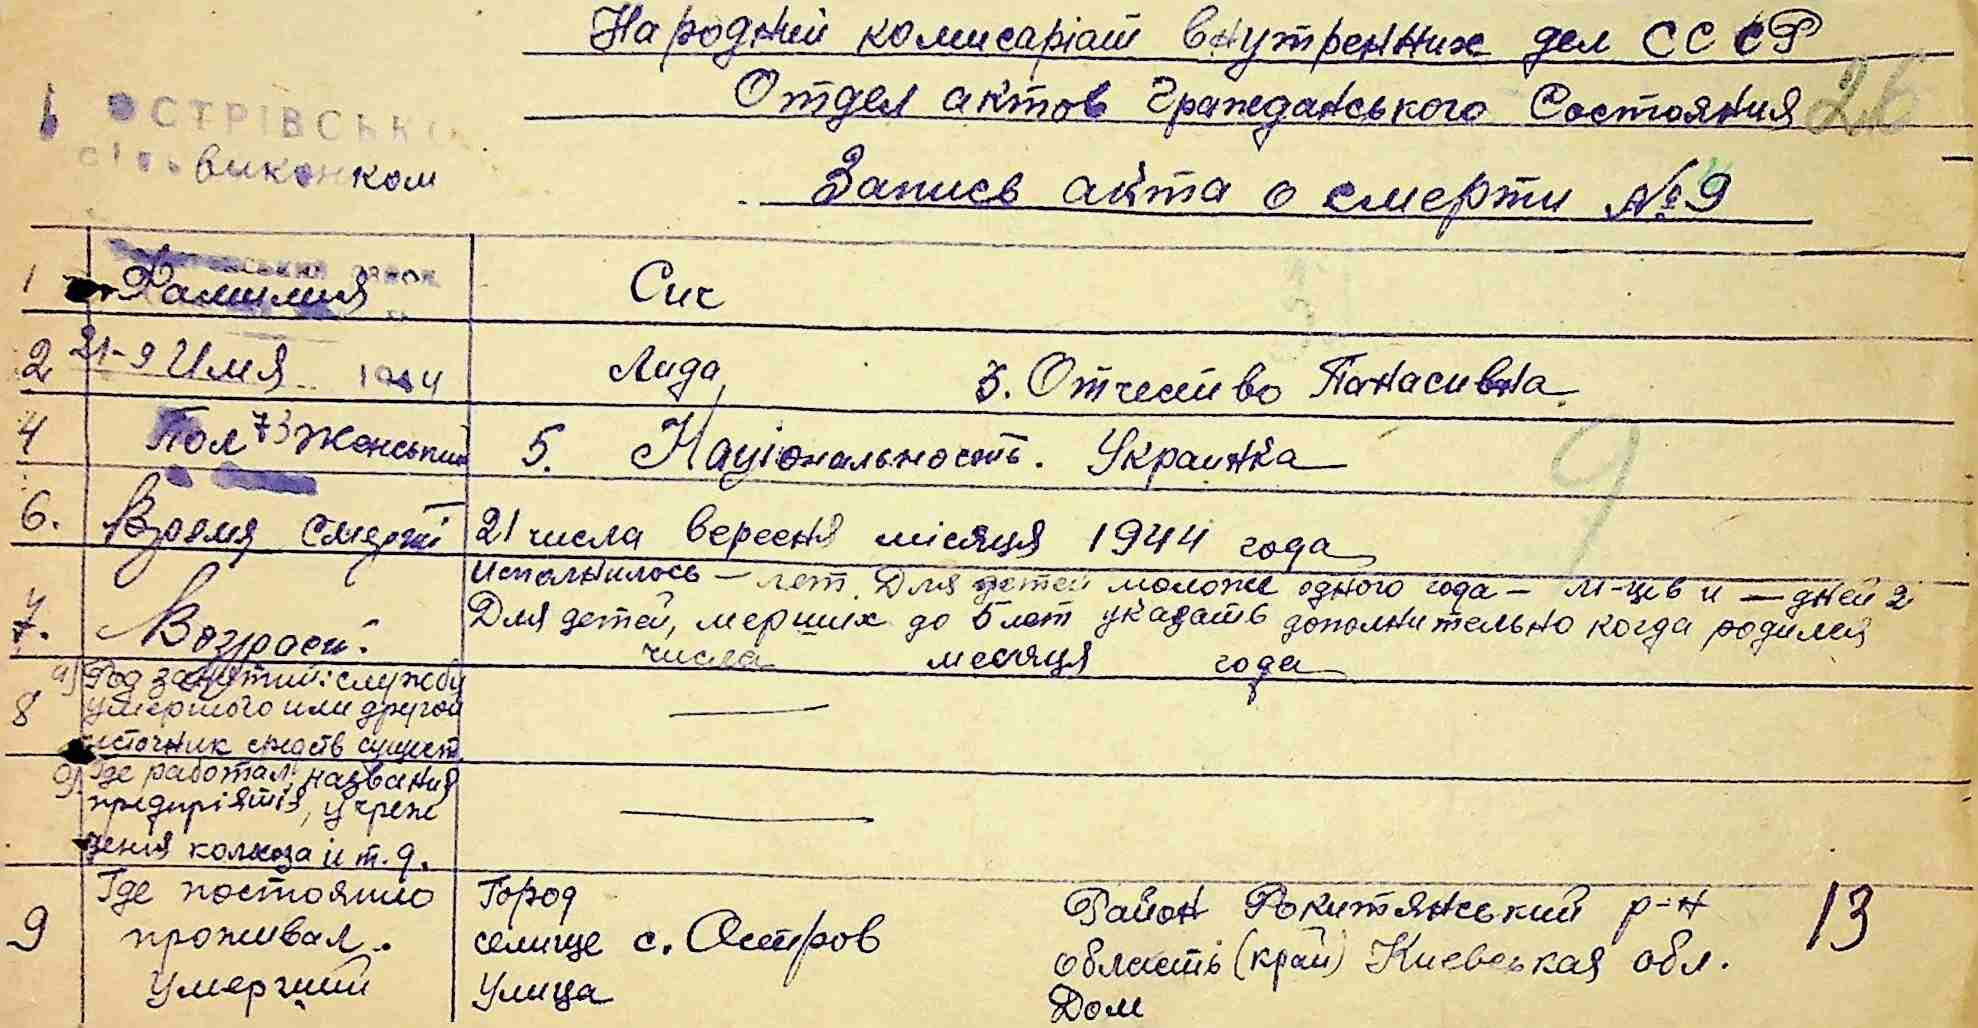 Народний комисаріат внутренних дел СССР
Отдел актов Гражданського Состояния 26
ОСТРІВСЬК
виконком
Запись акта о смерти №9
1 Фамилия Сич
2 21-9 Имя 1944 Лида 3. Отчество Панасивна
4 Пол 73 Женський 5. Національность. Украинка
9
6. Время смерті 21 числа вересня місяця 1944 года
7. Возраст. Исполнилось — лет. Для детей моложе одного года — м-цив и — дней 2
Для детей, мерших до 5 лет указать дополнительно когда родился
числа месяця года
8 а) Род занятий: службу
умершого или другой
источник средств сущест
Где работал, названия
предприятія, учреж
дения колхоза и т.д.
9 Где постоянно
проживал.
Умерший
Город
селище с. Остров
Улица
Район Рокитянський р-н
область (край) Киевськая обл.
Дом
13